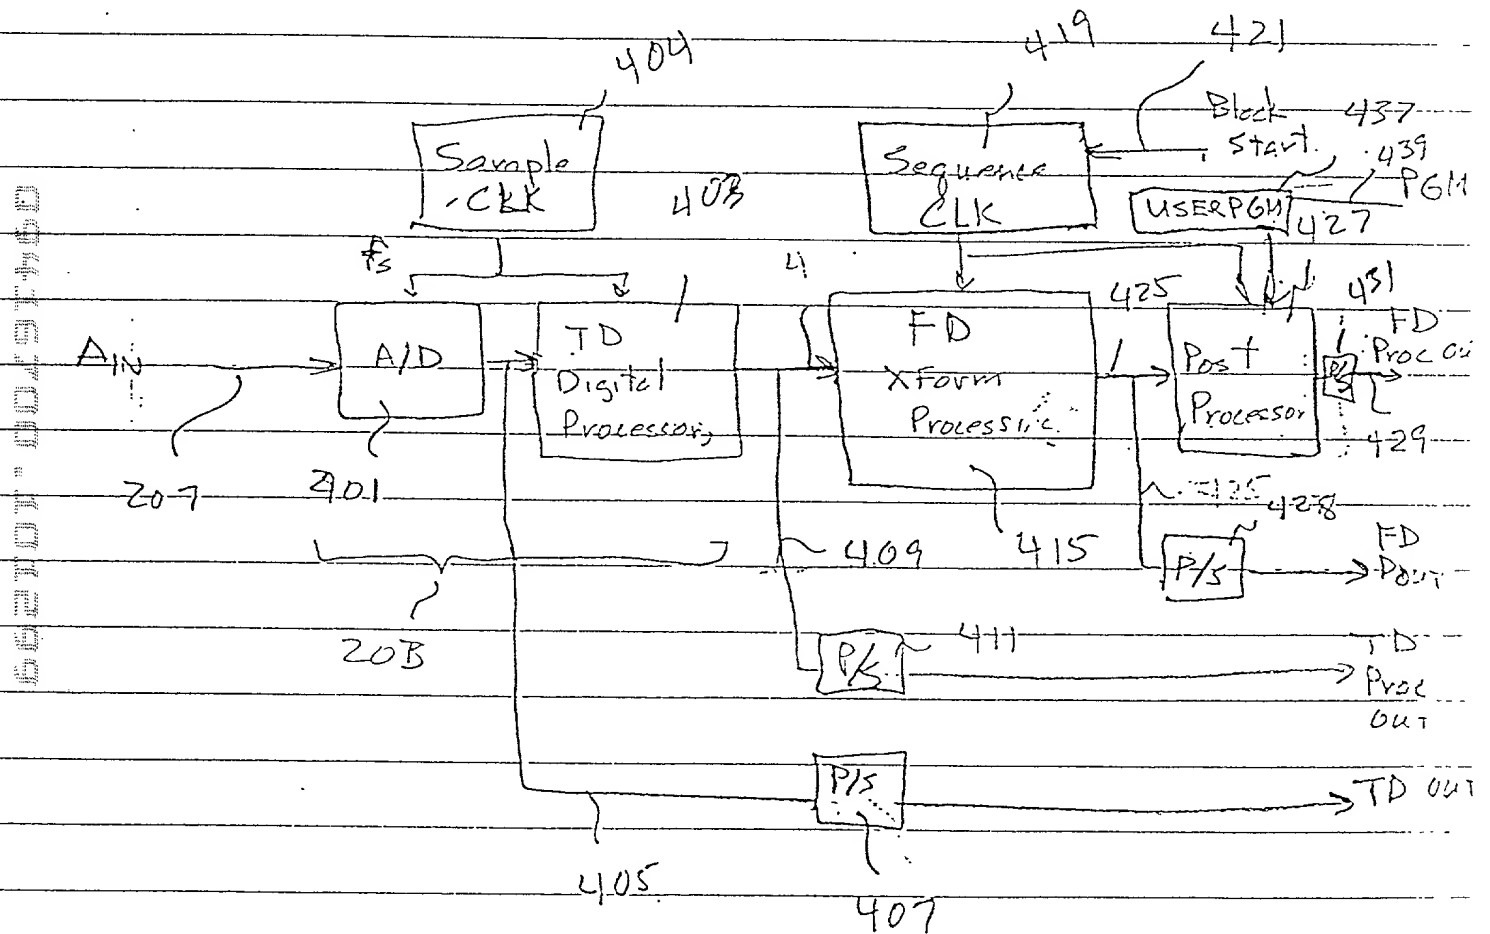 404
419
421
Block
Start
437
439
PGM
Sample
CLK
403
Sequence
CLK
USERPGM
427
fs
4
425
431
AIN
A/D
TD
Digital
Processor
FD
XForm
Processing
Post
Processor
P/S
FD
Proc Ou
429
207
401
425
428
409
415
P/S
FD
POUT
20B
P/S
411
TD
Proc
OUT
P/S
TD OUT
405
407